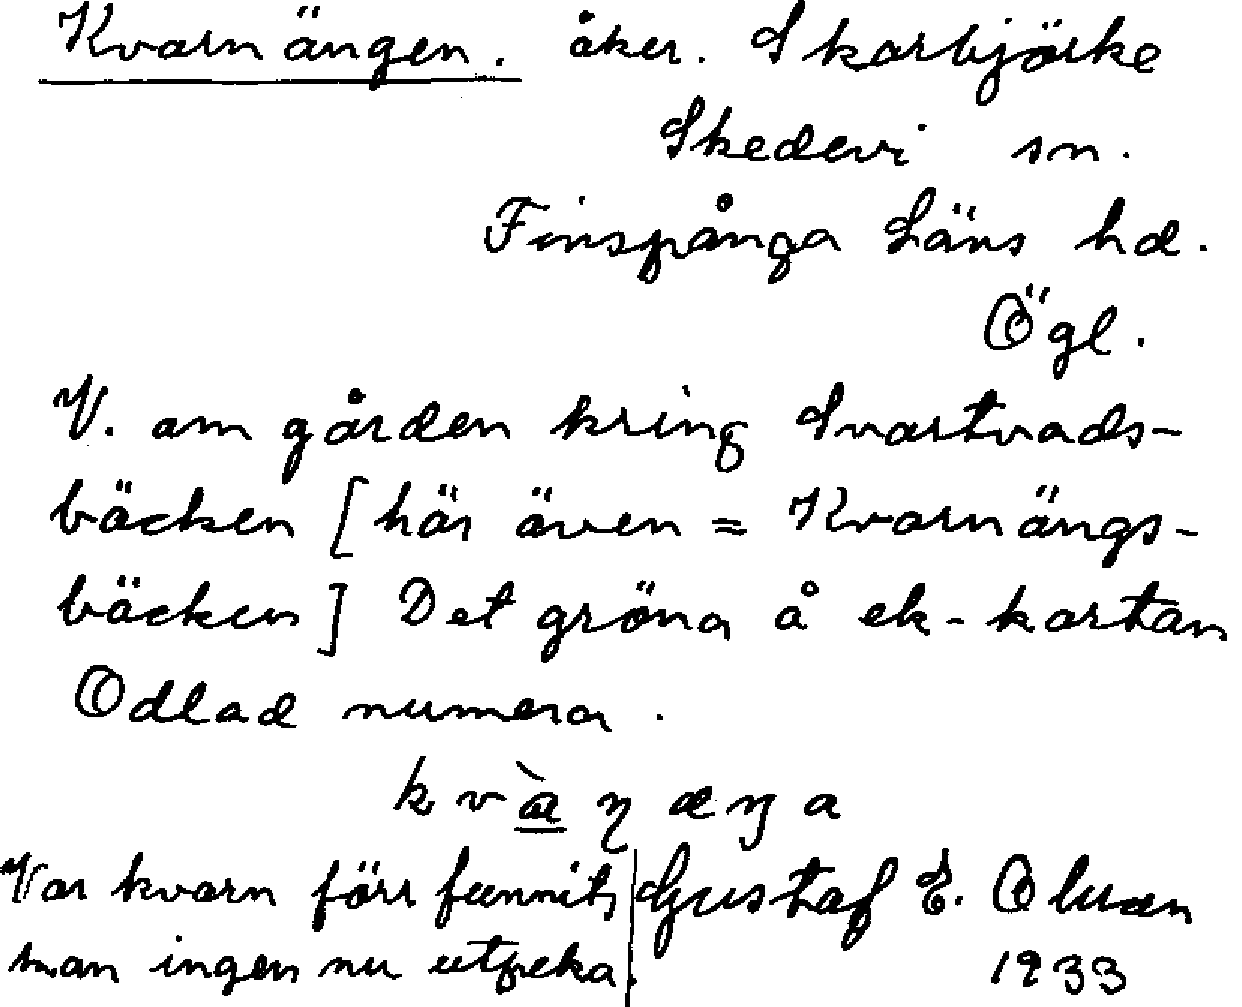 Kvarnängen. åker. Skarbjörke
Skedevi sn.
Finspånga Läns hd.
Ögl.
V. om gården kring Svartvads-
bäcken [här även = Kvarnängs-
bäcken] Det gröna å ek-kartan
Odlad numera.
Var kvarn förr funnits
man ingen nu utpeka.
Gustaf E. Olsson
1933